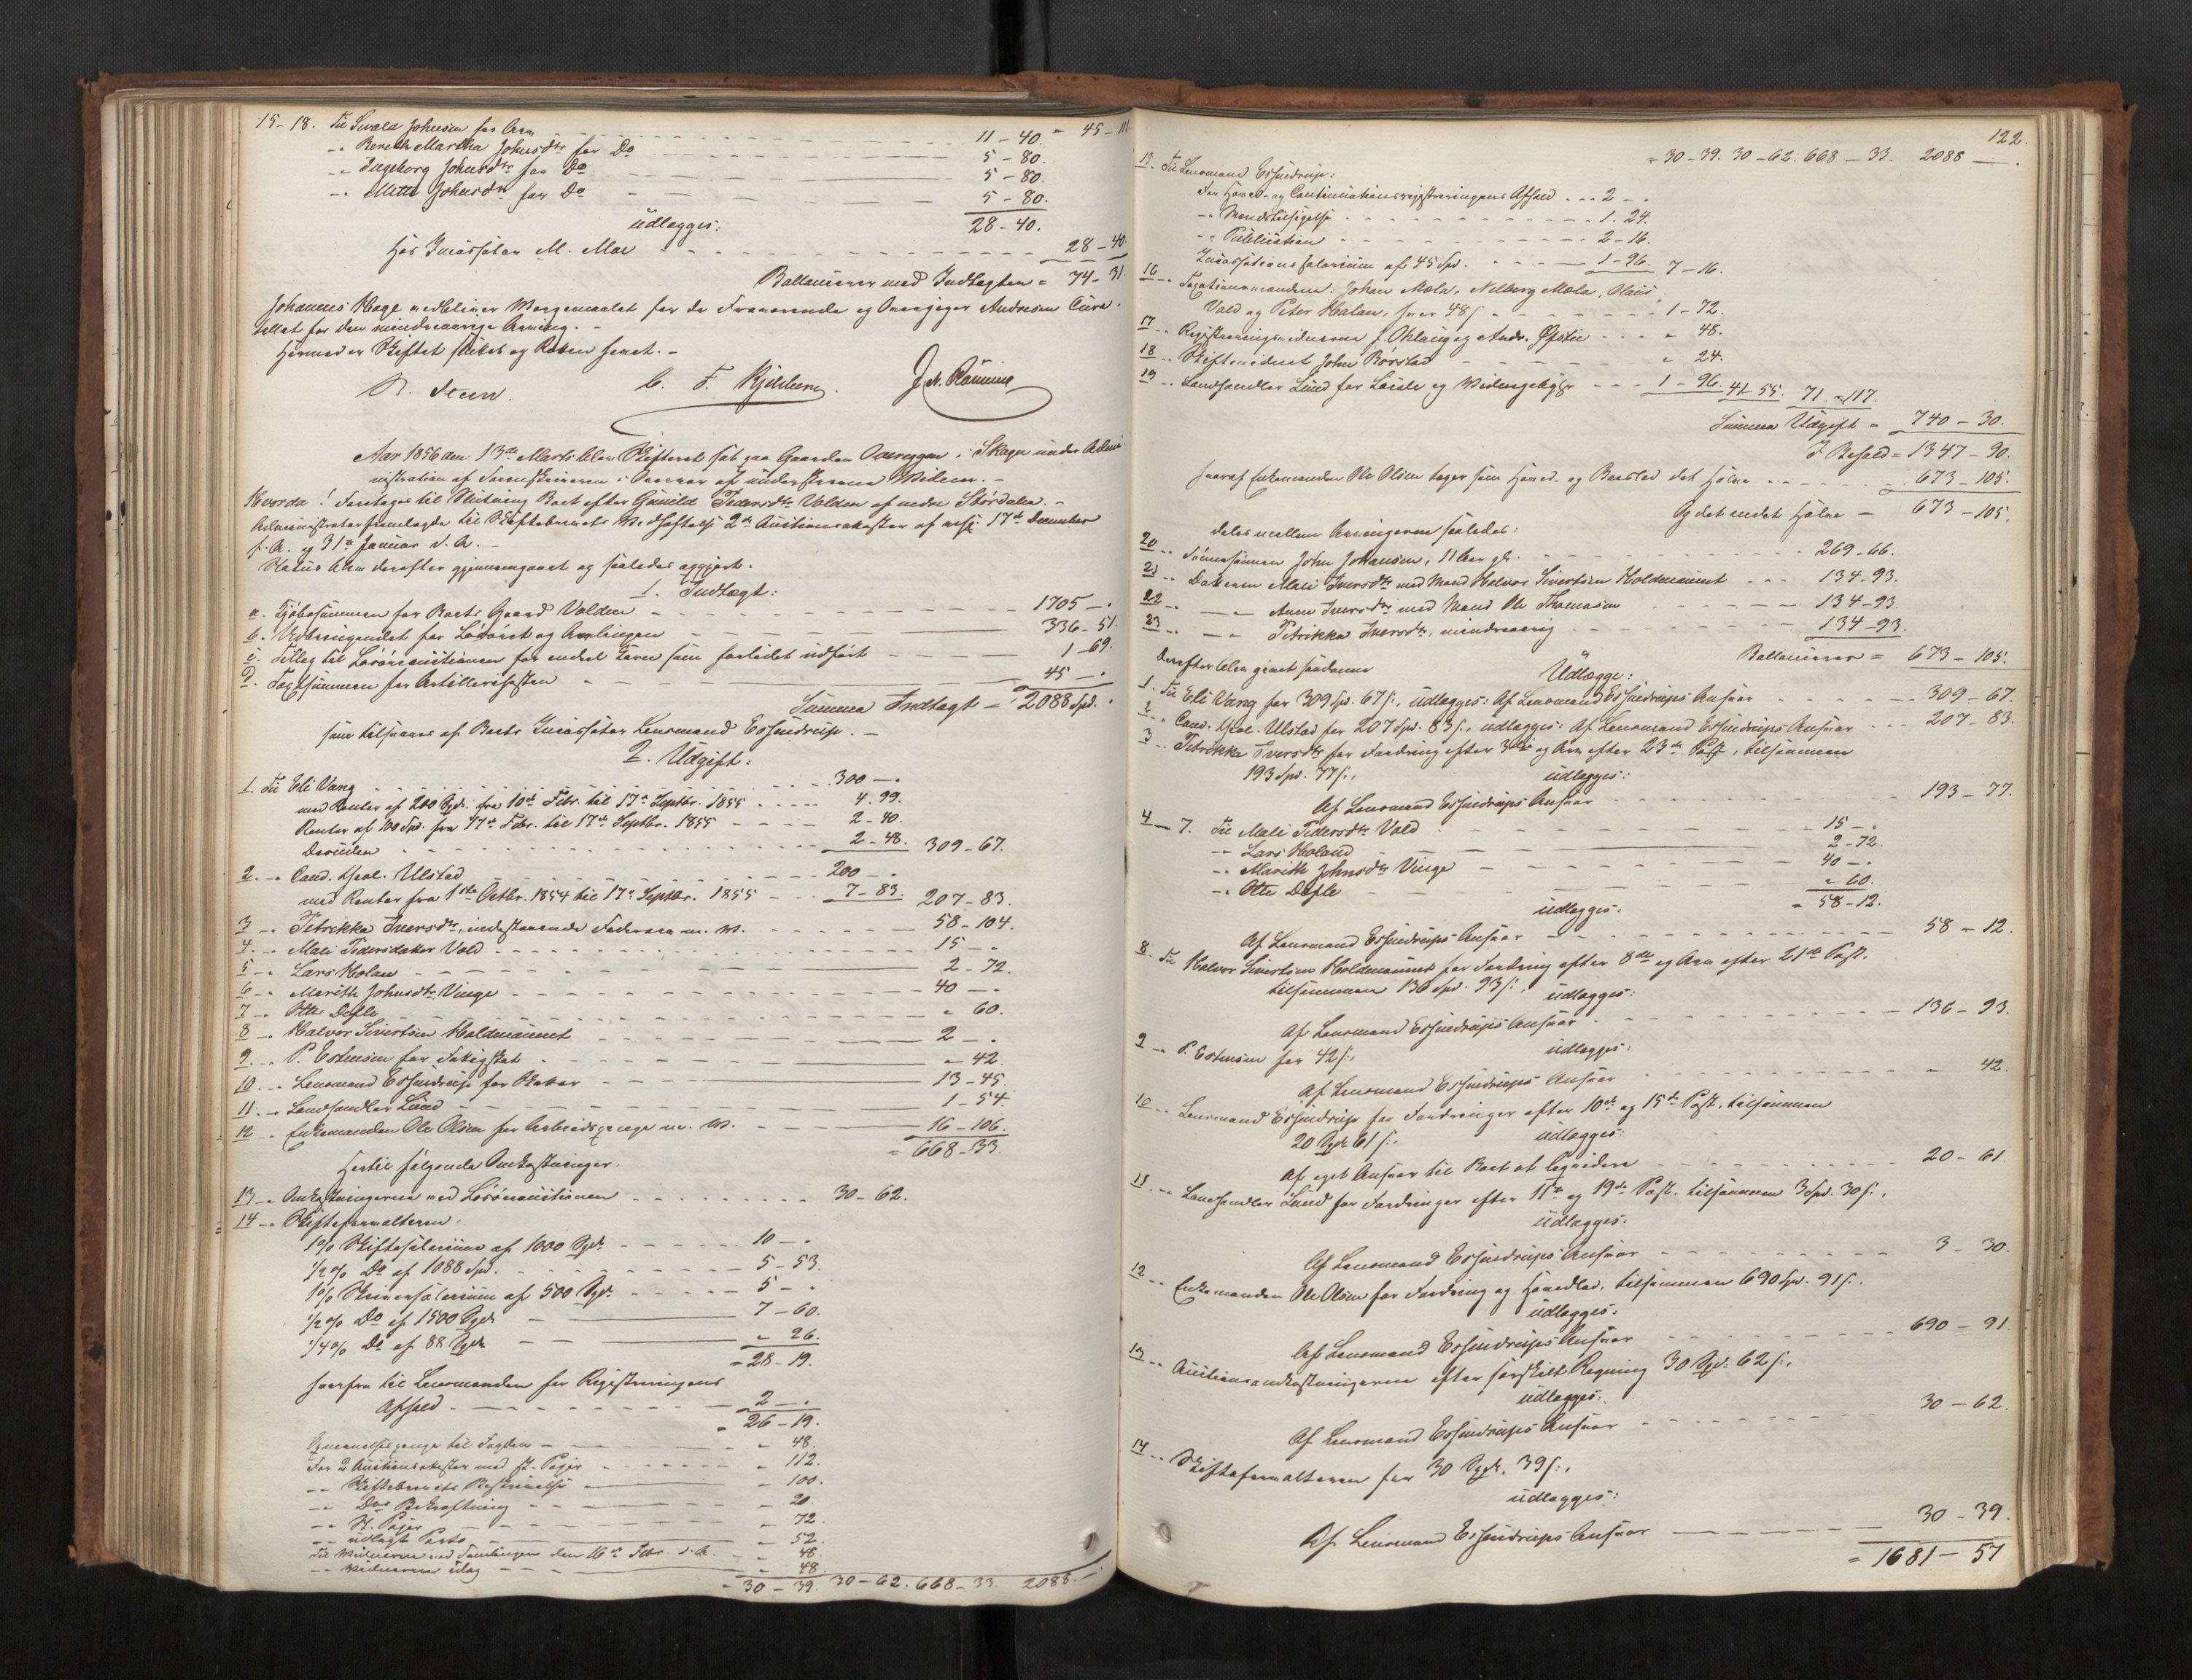 15-18. Til Sivald Johnsen for Arv - - - 11-40. " 45-111.
-" Bereth Martha Johnsdtr for Do - - - 5-80.
-" Ingeborg Johnsdtr for Do - - - 5-80.
-" Mette Johnsdtr for Do - - - 5-80.
28-40.
udlægges:
hos Incassator M. Moe - - - 28-40.
Ballancerer med Indtægten = 74-31.
Johannes Hage vedbliver Værgemaalet for de Fraværende og Overjæger Andresen Cura-
tellet for den mindreaarige Arving. -
Hermed er Skiftet sluttet og Retten hævet. -
R. Steen. C. F. Kjeldsen. J. N. Ramme
Aar 1856 den 13de Marts blev Skifteret sat paa Gaarden Overeggen i Skogn under Admi-
nistration af Sorenskriveren i Overvær af underskrevne Vidner. -
Hvorda! Foretoges til Slutning Boet efter Gunild Pedersdtr Volden af nedre Størdalen. -
Administrator fremlagde til Skiftebrevets Vedhæftelse 2de Auctionsakester af resp. 17de December
f. A. og 31te Januar d. A. -
Status blev derefter gjennemgaaet og saaledes opgjort.
1. Indtægt:
a. Kjøbesummen for Boets Gaard Volden - - - 1705-".
b. Udbringendet for Løsøret og Avlingen - - - 336-51.
c. Tillæg til Løsøreauctionen for endeel Varer som forledet udført - - - 1-69.
d. Taxtsummen for Artillerihesten - - - 45-".
Summa Indtægt = 2088 Spd.
som tilsvares af Boets Incassator Lensmand Essendrup. -
2. Udgift:
1. Til Eli Vang - - - 300-".
med Renter af 200 Spd. fra 10de Febr. til 17de Septbr. 1855 - - - 4-99.
Renter af 100 Spd. fra 17de Febr. til 17de Septbr. 1855 - - - 2-40.
Desuden - - - 2-48. 309-67.
2. -" Cand. theol. Ulstad - - - 200-".
med Renter fra 1ste Octbr. 1854 til 17de Septbr. 1855 - - - 7-83. 207-83.
3 -" Petrikka Iversdtr, indestaaende Fædrearv m. V. - - - 58-104.
4. -" Mali Pedersdatter Vold - - - 15-".
5 -" Lars Holan - - - 2-72.
6 -" Marith Johnsdtr Vinge - - - 40-".
7 -" Otte Døsle - - - " 60.
8 -" Halvor Sivertsen Holdmoumet - - - 2-".
9 -" P. Estensen for Fattigskat - - - " 42.
10. -" Lensmand Essendrup for Skatter - - - 13-45.
11. -" Landhandler Lund - - - 1-54.
12 -" Enkemanden Ole Olsen for Arbeidspenge m. V. - - - 16-106.
= 668-33.
Hertil følgende Omkostninger.
13 -" Omkostningerne ved Løsøreauctionen - - - 30-62.
14 -" Skifteforvalteren:
1% Skiftesalarium af 1000 Spd. - - - 10-".
1/2% Do af 1088 Spd. - - - 5-53.
1% Skriversalarium af 500 Spd. - - - 5-".
1/2% Do af 1500 Spd. - - - 7-60.
1/4% Do af 88 Spd. - - - " 26.
= 28-19.
hvorfra til Lensmanden for Registreringens
Afhold - - - 2-".
= 26-19.
Opnævnelsespenge til Fogden - - - " 48.
For 2 Auctionsakester med st. Papir - - - " 112.
-" Skiftebrevets Beskrivelse - - - " 100.
-" Dets Bekræftning - - - " 20.
-" St. Papir - - - " 72.
-" udlagt Porto - - - " 52.
Til Vidnerne ved Samlingen den 16de Febr. d. A. - - - " 48.
-" Vidnerne idag - - - " 48.
= 30-39. 30-62. 668-33. 2088-".
122.
= 30-39. 30-62. 668-33. 2088-".
15. Til Lensmand Essendrup:
For Hoved- og Continuationsregistreringens Afhold - - - 2-".
-" Mandstilsigelse - - - 1. 24.
-" Publication - - - 2-16.
Incassationssalarium af 45 Spd. - - - 1-96. 7-16.
16 -" Taxationsmændene: Johan Mæla, Nelberg Mæla, Olaus
Vold og Peter Halan, hver 48 s. - - - 1-72.
17 -" Registreringsvidnerne J. Oklaug og Andr. Øfstie - - - " 48.
18 -" Skiftevidnet John Børstad - - - " 24.
19 -" Landhandler Lund for Laasle og Vidnegebyhr - - - 1-96. 41-55. 71-117.
Summa Udgift = 740-30.
I Behold = 1347-90.
hvoraf Enkemanden Ole Olsen tager som Hoved- og Boeslod det Halve - - - 673-105.
Og det andet Halve = 673-105.
deles mellem Arvingerne saaledes:
20 -" Sønnesønnen John Johansen, 11 Aar gl. - - - 269-66.
21 -" Datteren Mali Iversdtr med Mand Halvor Sivertsen Holdmoumet - - - 134-93.
22 -" -" Anne Iversdtr med Mand Ole Thomasen - - - 134-93.
23 -" -" Petrikka Iversdtr, mindreaarig - - - 134-93.
Ballancerer = 673-105.
Derefter blev gjort saadanne
Udlægge:
1. Til Eli Vang for 309 Spd. 67 s., udlægges: Af Lensmand Essendrups Ansvar - - - 309-67.
2. -" Cand. theol. Ulstad for 207 Spd. 83 s., udlægges: Af Lensmand Essendrups Ansvar - - - 207-83.
3 -" Petrikka Iversdtr for Fordring efter 3die og Arv efter 23de Post, tilsammen
193 Spd. 77 s., udlægges:
Af Lensmand Essendrups Ansvar - - - 193-77.
4-7. Til Mali Pedersdtr Vold - - - 15-".
-" Lars Holand - - - 2-72.
-" Marith Johnsdtr Vinge - - - 40-".
-" Otte Døsle - - - " 60.
= 58-12.
udlægges:
Af Lensmand Essendrups Ansvar - - - 58-12.
8. Til Halvor Sivertsen Holdmoumet for Fordring efter 8de og Arv efter 21de Post,
tilsammen 136 Spd. 93 s., udlægges:
Af Lensmand Essendrups Ansvar - - - 136-93.
9 -" P. Estensen for 42 s., udlægges:
Af Lensmand Essendrups Ansvar - - - " 42.
10 -" Lensmand Essendrup for Fordringer efter 10de og 15de Post, tilsammen
20 Spd. 61 s., udlægges:
Af eget Ansvar til Boet at liqvidere - - - 20-61.
11. -" Landhandler Lund for Fordringer efter 11te og 19de Post, tilsammen 3 Spd. 30 s.,
udlægges:
Af Lensmand Essendrups Ansvar - - - 3-30.
12 -" Enkemanden Ole Olsen for Fordring og Hovedlod, tilsammen 690 Spd. 91 s.,
udlægges:
Af Lensmand Essendrups Ansvar - - - 690-91.
13 -" Auctionsomkostningerne efter særskilt Regning 30 Spd. 62 s.,
udlægges:
Af Lensmand Essendrups Ansvar - - - 30-62.
14 -" Skifteforvalteren for 30 Spd. 39 s.,
udlægges:
Af Lensmand Essendrups Ansvar - - - 30-39.
= 1681-57